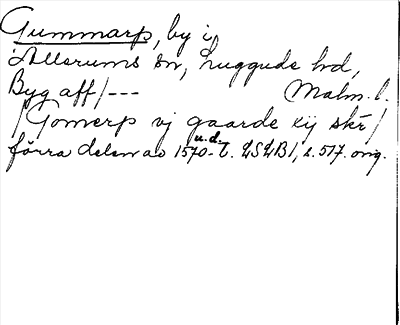 Gummarp, by i
Allerums sn, Luggude hd,
Byg aff/--- Malm. l.
/Gomerp vj gaarde xij skr/
förra delen av 1570-t. u.d. LSLB1, s. 517. orig.